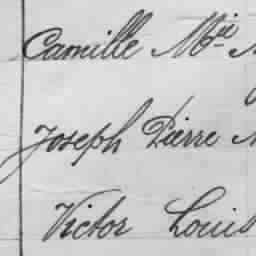 Camille Mie
Joseph Pierre
Victor Louis